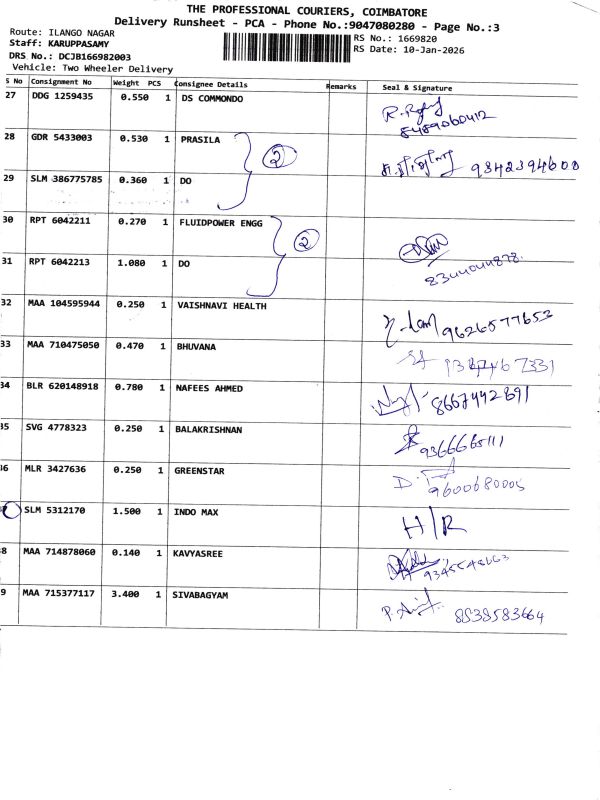 THE PROFESSIONAL COURIERS, COIMBATORE
Delivery Runsheet - PCA - Phone No.:9047080280 - Page No.:3
Route: ILANGO NAGAR
RS No.: 1669820
Staff: KARUPPASAMY
RS Date: 10-Jan-2026
DRS No.: DCJB166982003
Vehicle: Two Wheeler Delivery
S No Consignment No Weight PCS Consignee Details Remarks Seal & Signature
27 DDG 1259435 0.550 1 DS COMMONDO
8489060412
28 GDR 5433003 0.530 1 PRASILA 2
9842394600
29 SLM 386775785 0.360 1 DO
30 RPT 6042211 0.270 1 FLUIDPOWER ENGG 2
31 RPT 6042213 1.080 1 DO
8344044878.
32 MAA 104595944 0.250 1 VAISHNAVI HEALTH
9626577653
33 MAA 710475050 0.470 1 BHUVANA
34 BLR 620148918 0.780 1 NAFEES AHMED
8667442691
35 SVG 4778323 0.250 1 BALAKRISHNAN
9366665111
36 MLR 3427636 0.250 1 GREENSTAR
9600680005
SLM 5312170 1.500 1 INDO MAX H/R
8 MAA 714878060 0.140 1 KAVYASREE
9 MAA 715377117 3.400 1 SIVABAGYAM
8838583664